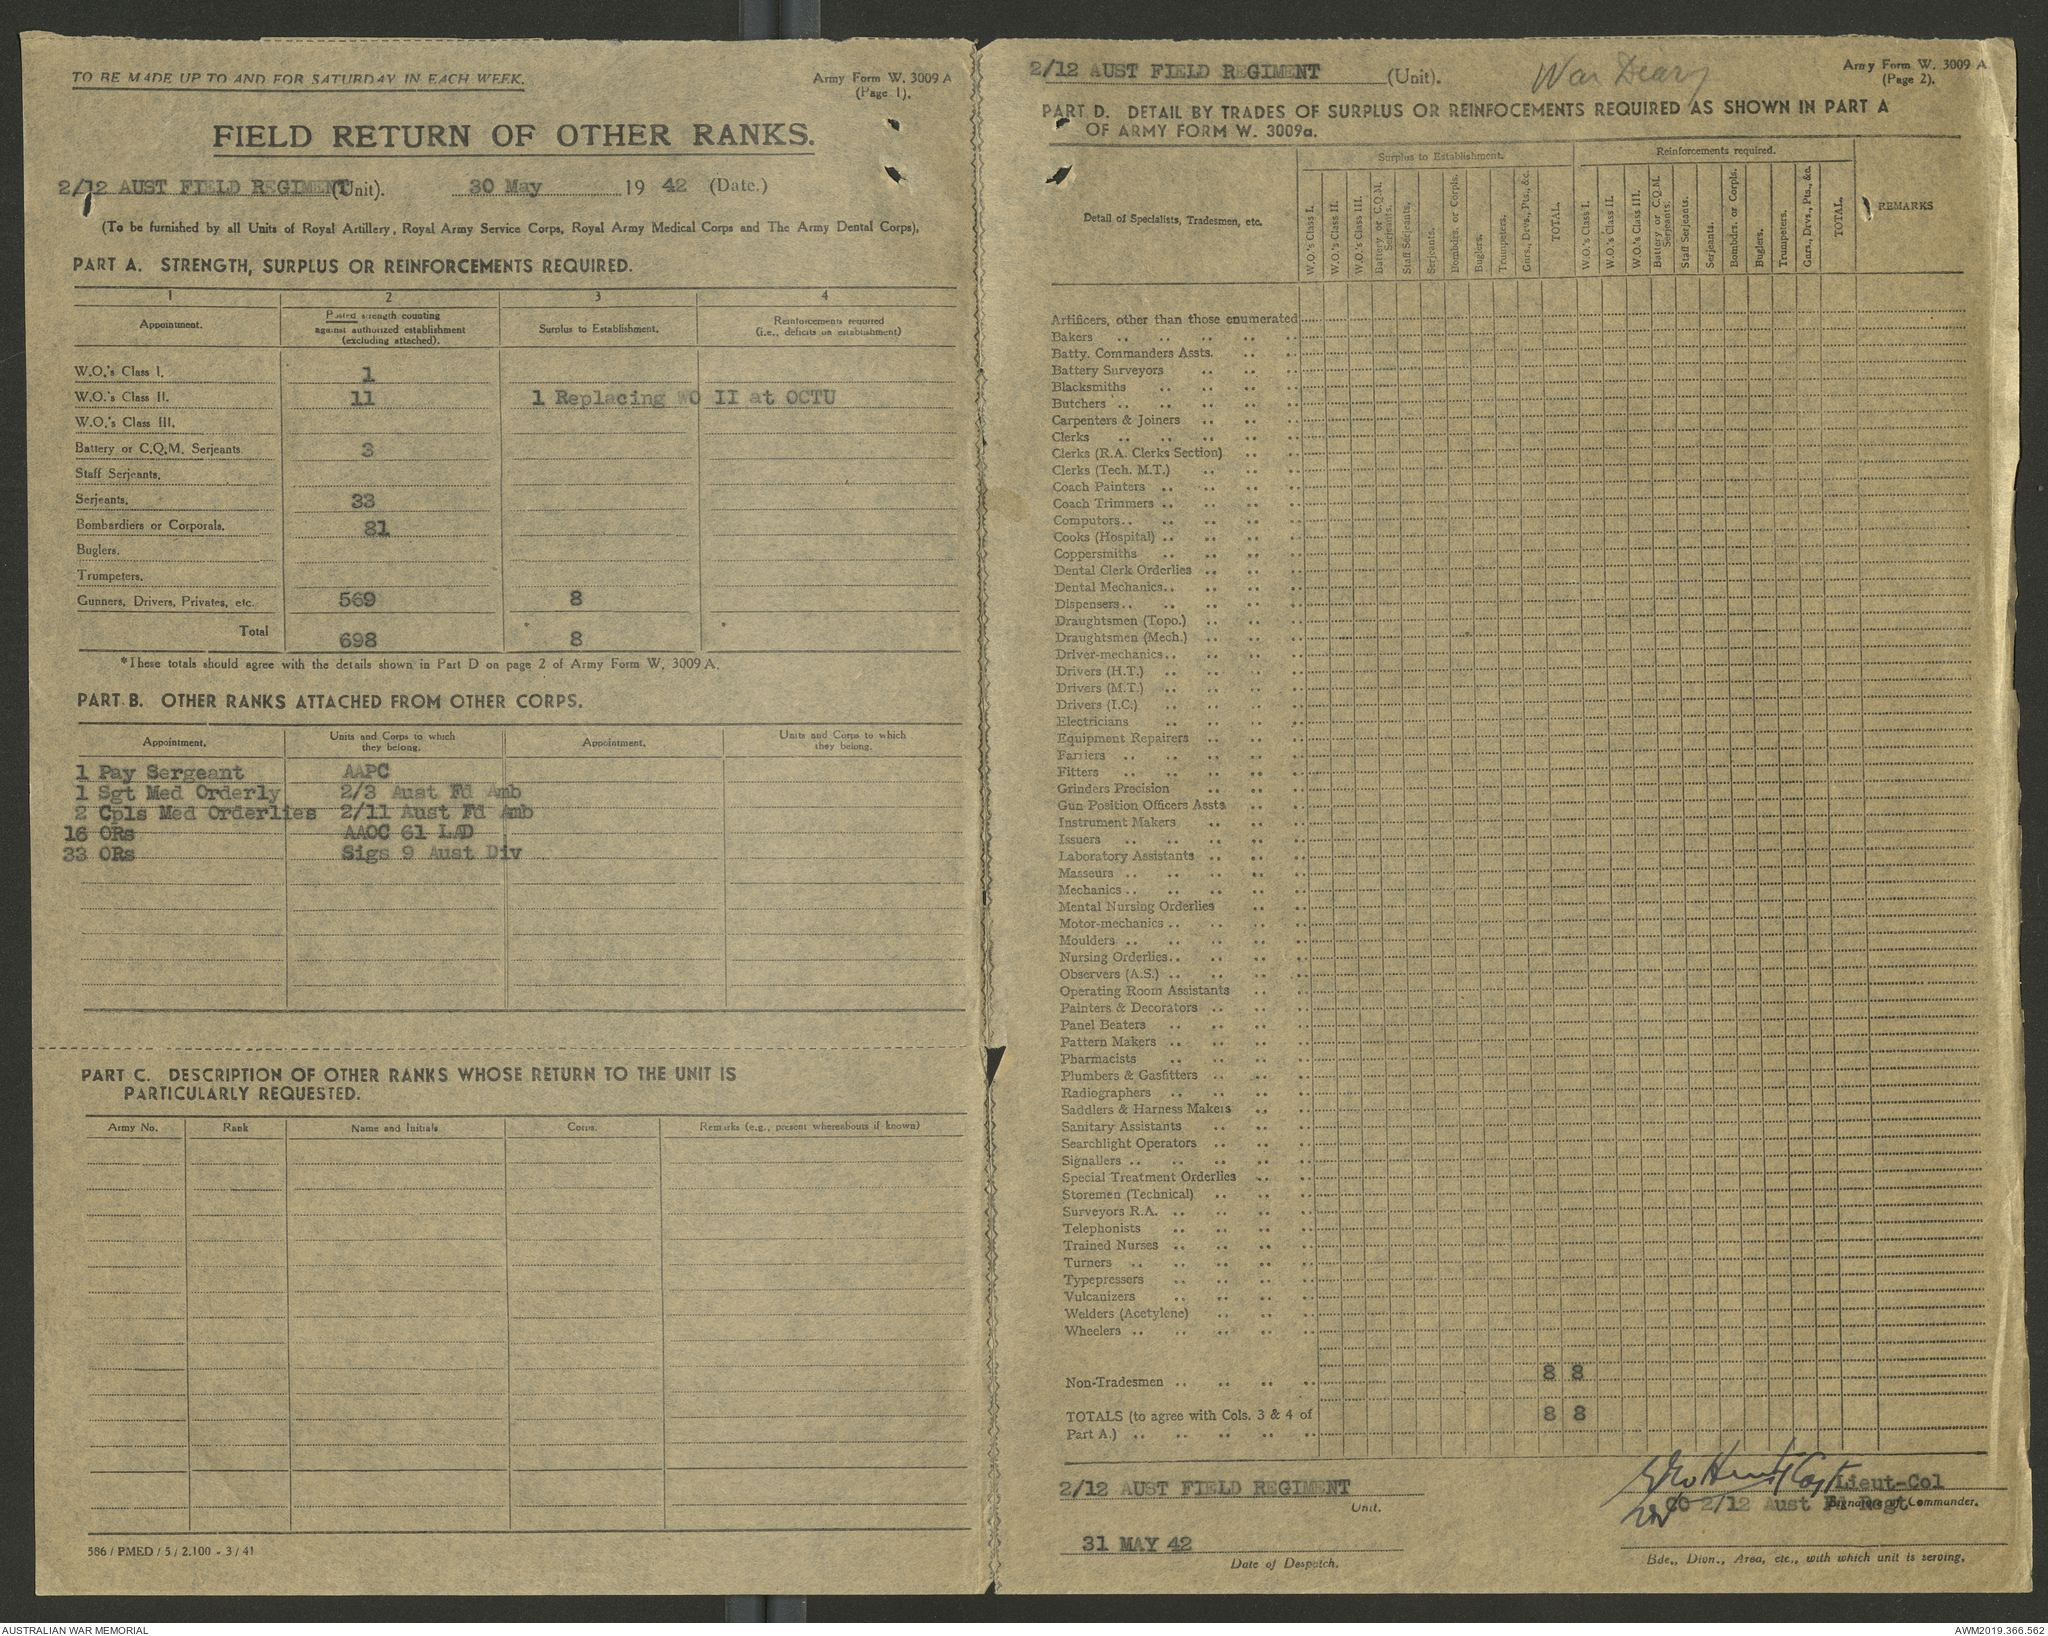 TO BE MADE UP TO AND FOR SATURDAY IN EACH WEEK.
Army Form W. 3009 A
(Page 1).
FIELD RETURN OF OTHER RANKS.
2/12 AUST FIELD REGIMENT (Unit). 30 May 19 42 (Date.)
(To be furnished by all Units of Royal Artillery, Royal Army Service Corps, Royal Army Medical Corps and The Army Dental Corps),
PART A. STRENGTH, SURPLUS OR REINFORCEMENTS REQUIRED.
1 2 3 4
Appointment. Posted strength counting against authorized establishment (excluding attached). Surplus to Establishment. Reinforcements required (i.e., deficits on establishment)
W.O.'s Class I. 1
W.O.'s Class II. 11 1 Replacing WO II at OCTU
W.O.'s Class III.
Battery or C.Q.M. Serjeants 3
Staff Serjeants.
Serjeants. 33
Bombardiers or Corporals. 81
Buglers.
Trumpeters.
Gunners, Drivers, Privates, etc. 569 8
Total 698 * 8 *
*These totals should agree with the details shown in Part D on page 2 of Army Form W. 3009 A.
PART B. OTHER RANKS ATTACHED FROM OTHER CORPS.
Appointment. Units and Corps to which they belong. Appointment. Units and Corps to which they belong.
1 Pay Sergeant AAPC
1 Sgt Med Orderly 2/3 Aust Fd Amb
2 Cpls Med Orderlies 2/11 Aust Fd Amb
16 ORs AAOC 61 LAD
33 ORs Sigs 9 Aust Div
PART C. DESCRIPTION OF OTHER RANKS WHOSE RETURN TO THE UNIT IS
PARTICULARLY REQUESTED.
Army No. Rank Name and Initials Corps. Remarks (e.g., present whereabouts if known)
586 / PMED / 5 / 2.100 - 3 / 41
2/12 AUST FIELD REGIMENT (Unit). War Diary
Army Form W. 3009 A
(Page 2).
PART D. DETAIL BY TRADES OF SURPLUS OR REINFOCEMENTS REQUIRED AS SHOWN IN PART A
OF ARMY FORM W. 3009a.
Detail of Specialists, Tradesmen, etc. Surplus to Establishment. Reinforcements required. REMARKS
W.O.'s Class I. W.O.'s Class II. W.O.'s Class III. Battery or C.Q.M. Serjeants. Staff Serjeants. Serjeants. Bombdrs. or Corpls. Buglers. Trumpeters. Gnrs., Drvs., Pts., &c. TOTAL.
W.O.'s Class I. W.O.'s Class II. W.O.'s Class III. Battery or C.Q.M. Serjeants. Staff Serjeants. Serjeants. Bombdrs. or Corpls. Buglers. Trumpeters. Gnrs., Drvs., Pts., &c. TOTAL.
Artificers, other than those enumerated
Bakers
Batty. Commanders Assts.
Battery Surveyors
Blacksmiths
Butchers
Carpenters & Joiners
Clerks
Clerks (R.A. Clerks Section)
Clerks (Tech. M.T.)
Coach Painters
Coach Trimmers
Computors
Cooks (Hospital)
Coppersmiths
Dental Clerk Orderlies
Dental Mechanics
Dispensers
Draughtsmen (Topo.)
Draughtsmen (Mech.)
Driver-mechanics
Drivers (H.T.)
Drivers (M.T.)
Drivers (I.C.)
Electricians
Equipment Repairers
Farriers
Fitters
Grinders Precision
Gun Position Officers Assts.
Instrument Makers
Issuers
Laboratory Assistants
Masseurs
Mechanics
Mental Nursing Orderlies
Motor-mechanics
Moulders
Nursing Orderlies
Observers (A.S.)
Operating Room Assistants
Painters & Decorators
Panel Beaters
Pattern Makers
Pharmacists
Plumbers & Gasfitters
Radiographers
Saddlers & Harness Makers
Sanitary Assistants
Searchlight Operators
Signallers
Special Treatment Orderlies
Storemen (Technical)
Surveyors R.A.
Telephonists
Trained Nurses
Turners
Typepressers
Vulcanizers
Welders (Acetylene)
Wheelers
Non-Tradesmen 8 8
TOTALS (to agree with Cols. 3 & 4 of 8 8
Part A.)
2/12 AUST FIELD REGIMENT
Unit.
Capt Lieut-Col
CO 2/12 Aust Fd Regt
Signature of Commander.
31 MAY 42
Date of Despatch.
Bde., Divn., Area, etc., with which unit is serving.
AUSTRALIAN WAR MEMORIAL
AWM2019.366.562